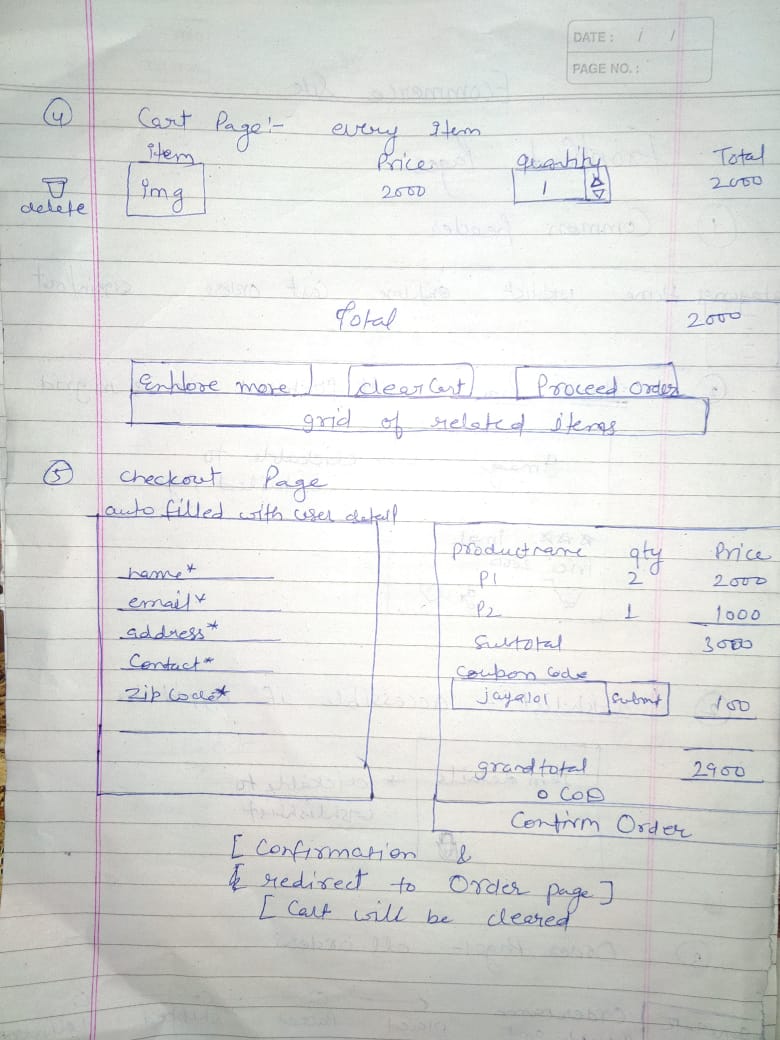 DATE: / /
PAGE NO.:
④ Cart Page:- every Item
item Price quantity Total
delete img 2000 1 2000
Total 2000
Explore more clear Cart Proceed Order
grid of related items
⑤ checkout Page
auto filled with user detail
productname qty Price
name* P1 2 2000
email*
P2 1 1000
address*
Subtotal 3000
Contact*
Coupon Code
Zip Code* jaya101 Submit 100
grandtotal 2900
o COD
Confirm Order
[ Confirmation &
[ redirect to Order page ]
[ Cart will be cleared